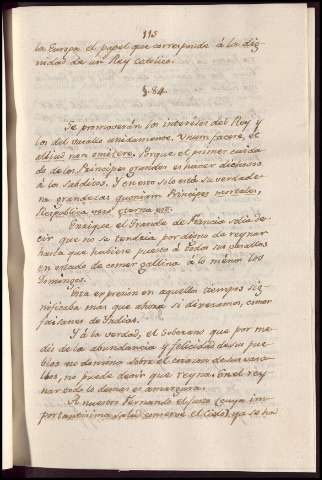 115
la Europa el papel que corresponde á la dig-
nidad de un Rey catolico.
§. 84.
Se promoverán los intereses del Rey y
los del vasallo unidamente. Unum facere, et
alterum non omittere. Porque el primer cuida-
do de los Principes grandes es hacer dichosos
á los subditos. Y en esto solo está su verdade-
ra grandeza: quoniam Principes mortales,
Respublica vero eterna est.
Enrique el Grande de Francia solia de-
cir que no se tendria por digno de reynar
hasta que hubiese puesto á todos sus vasallos
en estado de comer gallina á lo menos los
Domingos.
Esta expresion en aquellos tiempos sig-
nificaba mas que ahora si dixesemos, comer
faisanes de Indias.
Y á la verdad, el Soberano que por me-
dio de la abundancia y felicidad de sus pue-
blos no domina sobre el corazon de sus vasa-
llos, no puede decir que reyna. En el rey-
nar todo lo demas es amargura.
A nuestro Fernando el Justo (cuya im-
portantisima salud conserve el Cielo) ya se ha